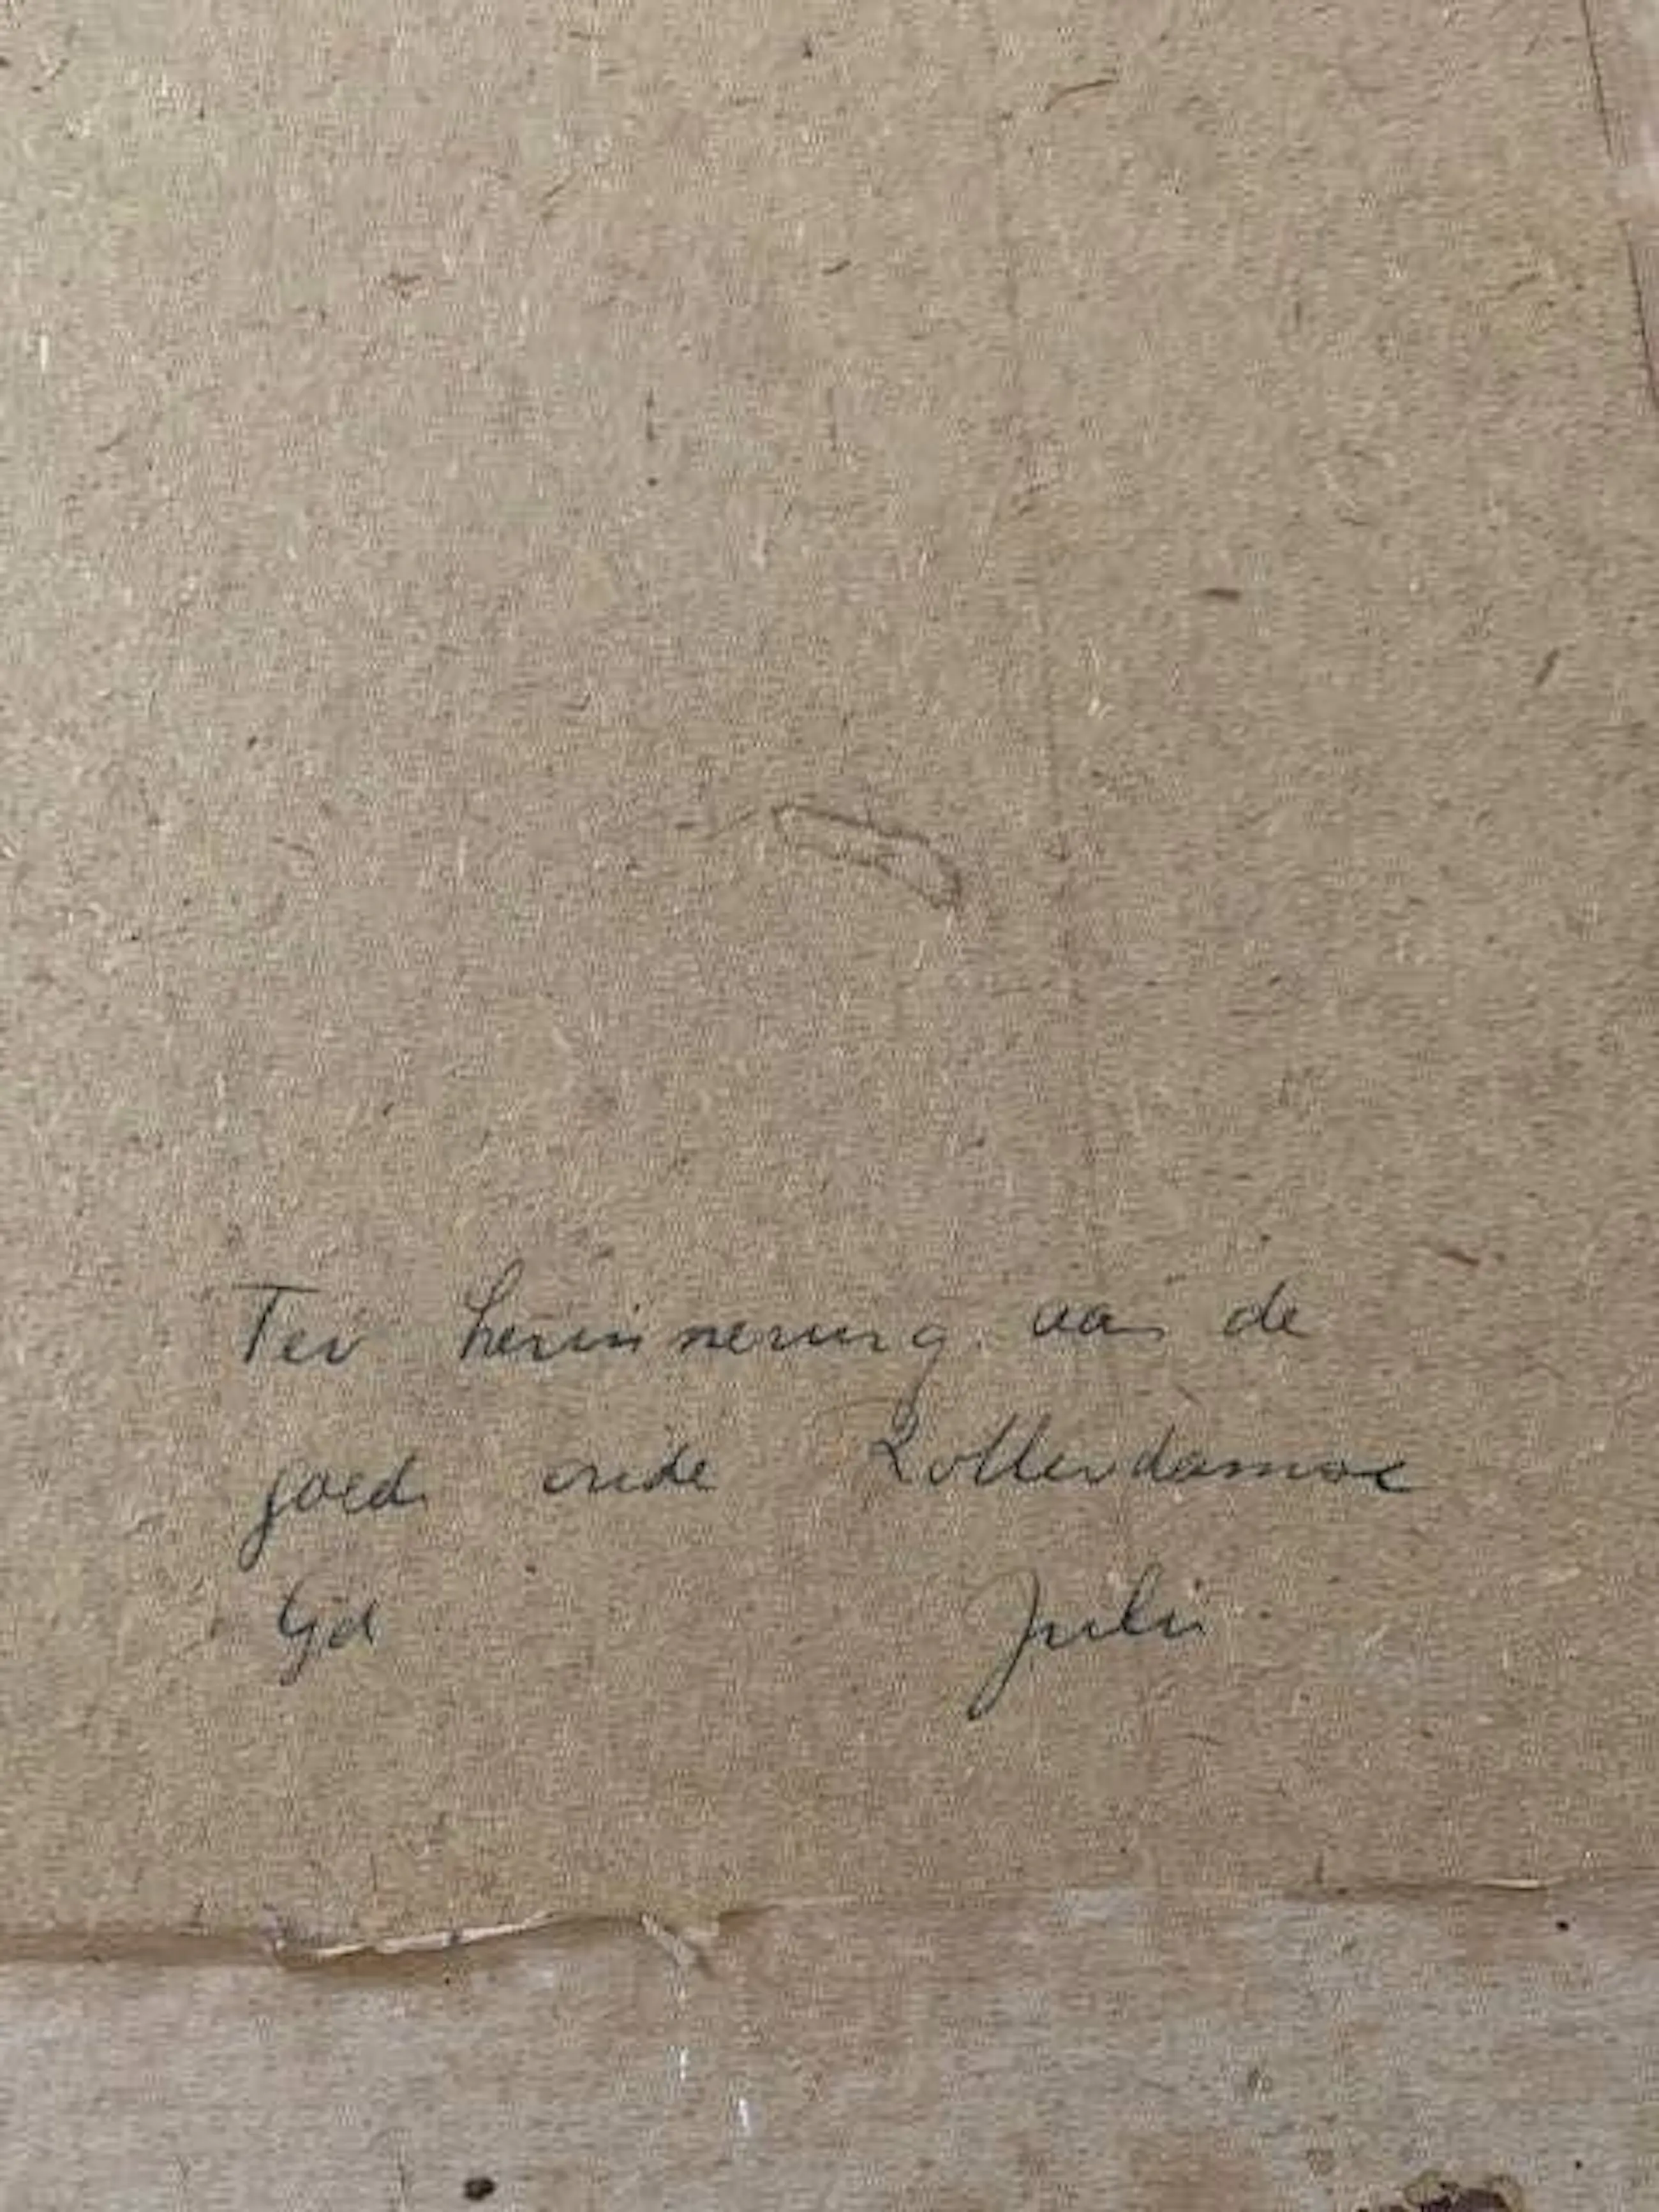 Ter herinnering aan de
goed oude Rotterdamse
tijd Julie